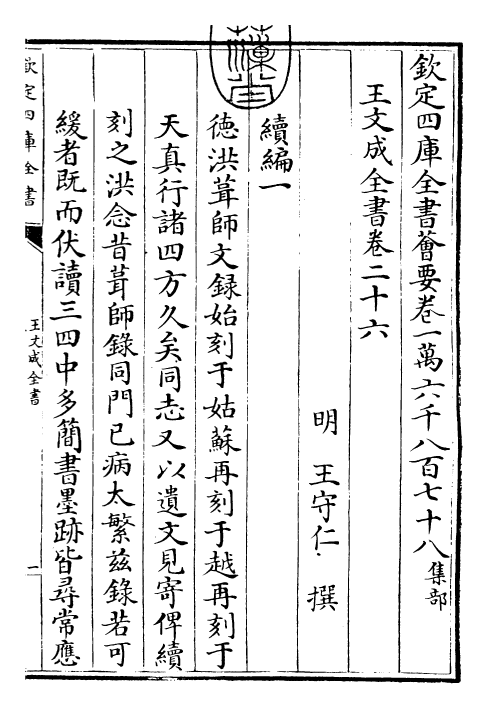 欽定四庫全書薈要卷一萬六千八百七十八集部
王文成全書卷二十六
明 王守仁 撰
續編一
德洪葺師文録始刻于姑蘇再刻于越再刻于
天真行諸四方久矣同志又以遺文見寄俾續
刻之洪念昔葺師錄同門已病太繁茲錄若可
緩者既而伏讀三四中多簡書墨跡皆尋常應
欽定四庫全書
王文成全書
一